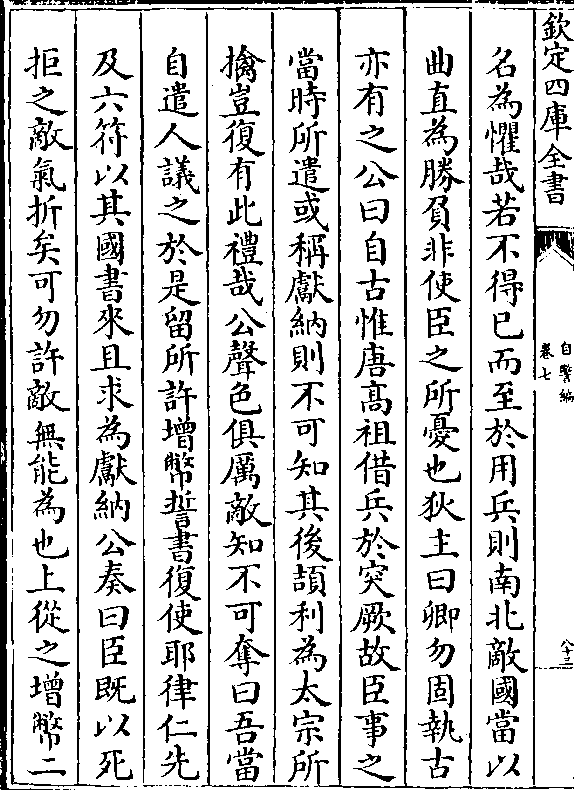 欽定四庫全書
自警編
卷七
八十三
名為懼哉若不得已而至於用兵則南北敵國當以
曲直為勝負非使臣之所憂也狄主曰卿勿固執古
亦有之公曰自古惟唐高祖借兵於突厥故臣事之
當時所遣或稱獻納則不可知其後頡利為太宗所
擒豈復有此禮哉公聲色俱厲敵知不可奪曰吾當
自遣人議之於是留所許增幣誓書復使耶律仁先
及六符以其國書來且求為獻納公奏曰臣既以死
拒之敵氣折矣可勿許敵無能為也上從之增幣二